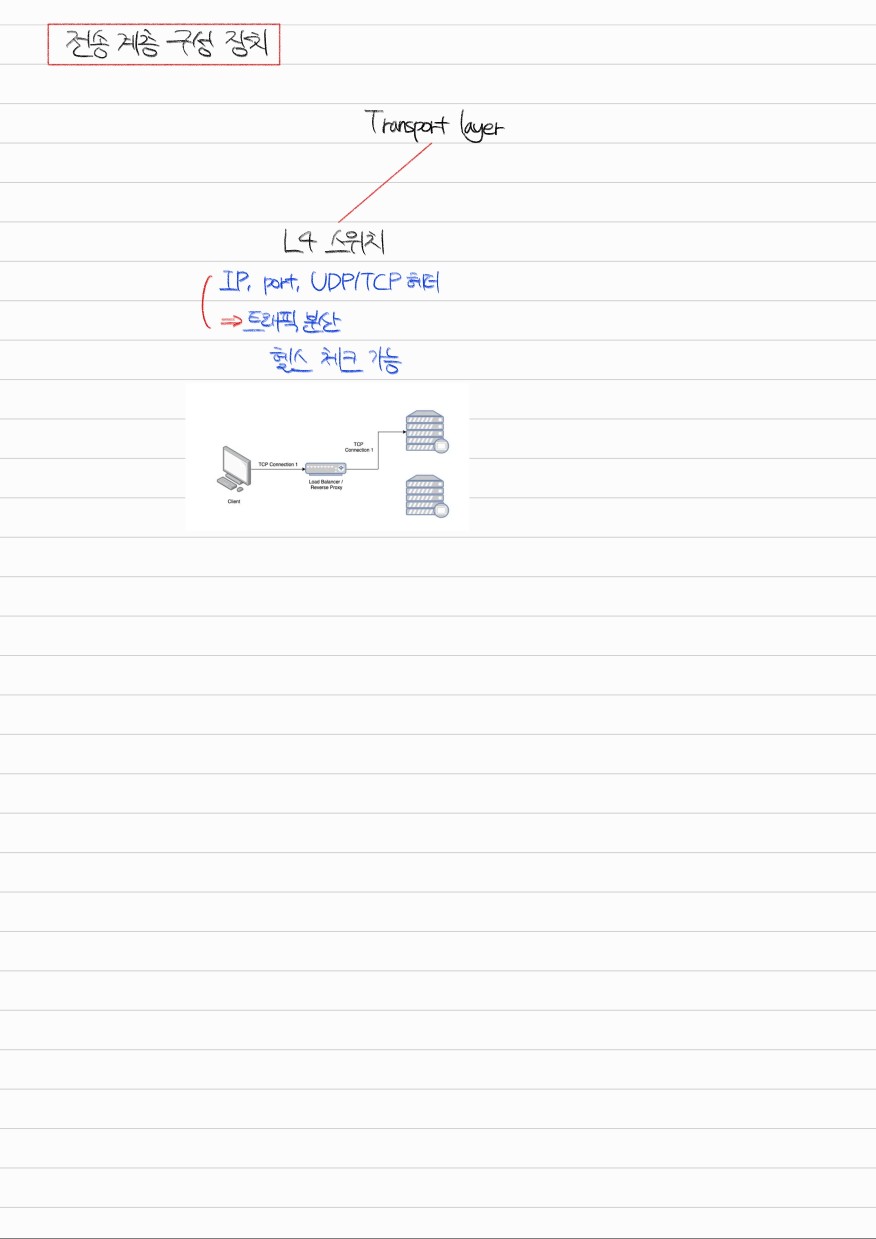 전송 계층 구성 장치
Transport layer
L4 스위치
IP, port, UDP/TCP 헤더
⇒ 트래픽 분산
헬스 체크 가능
TCP
Connection 1
TCP Connection 1
Load Balancer /
Reverse Proxy
Client